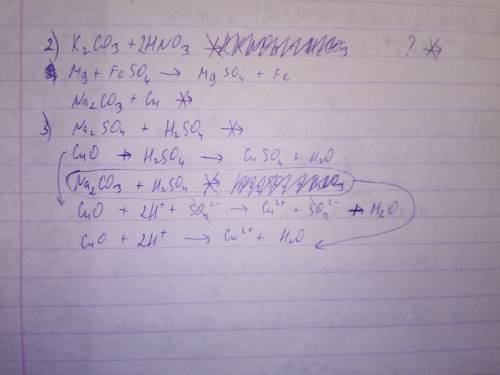 2) K₂CO₃ + 2HNO₃ ↛ ? ↛
Mg + FeSO₄ → MgSO₄ + Fe
Na₂CO₃ + Cu ↛
3) Na₂SO₄ + H₂SO₄ ↛
CuO + H₂SO₄ → CuSO₄ + H₂O
Na₂CO₃ + H₂SO₄ ↛
CuO + 2H⁺ + SO₄²⁻ → Cu²⁺ + SO₄²⁻ + H₂O
CuO + 2H⁺ → Cu²⁺ + H₂O